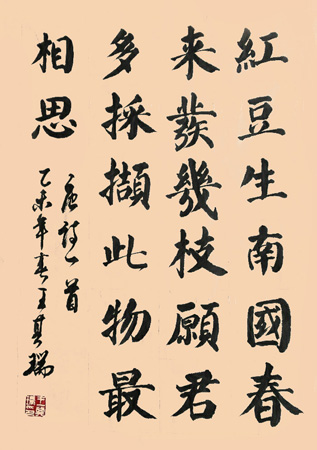 紅豆生南國春
来發幾枝願君
多採擷此物最
相思
唐詩一首
乙未年春王其瑞